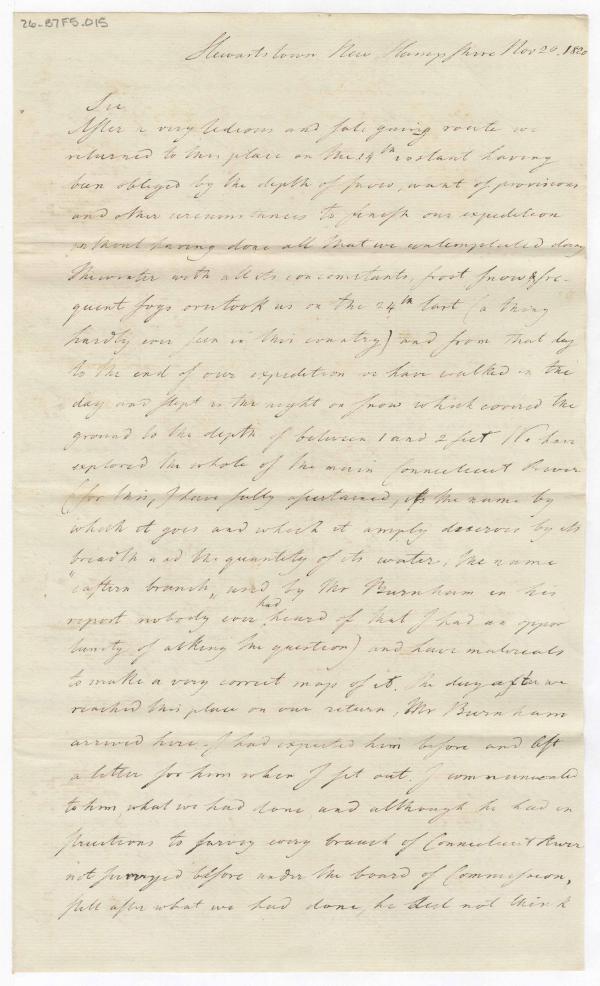 26-B7F5.015
Stewartstown New Hampshire Nov 20. 1820
Sir
After a very tedious and fatiguing route we
returned to this place on the 14th instant having
been obliged by the depth of snow, want of provisions
and other circumstances to finish our expedition
without having done all that we contemplated doing
The winter with all its concomitants, frost snow & fre-
quent fogs overtook us on the 24th last (a thing
hardly ever seen in this country) and from that day
to the end of our expedition we have walked in the
day and slept in the night on snow which covered the
ground to the depth of between 1 and 2 feet We have
explored the whole of the main Connecticut River
(for this, I have fully ascertained, is the name by
which it goes and which it amply deserves by its
breadth and the quantity of its water, the name
"eastern branch" used by Mr Burnham in his
report nobody ever had heard of that I had an oppor
tunity of asking the question) and have materials
to make a very correct map of it. The day after we
reached this place on our return, Mr Burnham
arrived here. I had expected him before and left
a letter for him when I set out. I communicated
to him what we had done and although he had in
structions to survey every branch of Connecticut River
not surveyed before under the board of Commission,
still after what we had done, he did not think